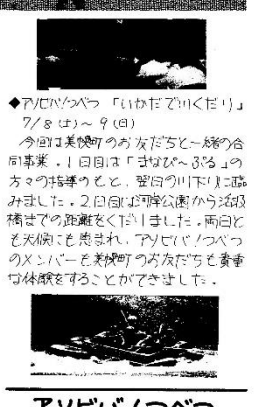 ◆アソビバ!つべつ 「いかだで川くだり」
7/8(土)~9(日)
今回は美幌町のお友だちと一緒の合
同事業。1日目は「まなび~ぷる」の
方々の指導のもと、翌日の川下りに臨
みました。2日目は河岸公園から活汲
橋までの距離をくだりました。両日と
も天候にも恵まれ、アソビバ!つべつ
のメンバーも美幌町のお友だちも貴重
な体験をすることができました。
アソビバ!つべつ